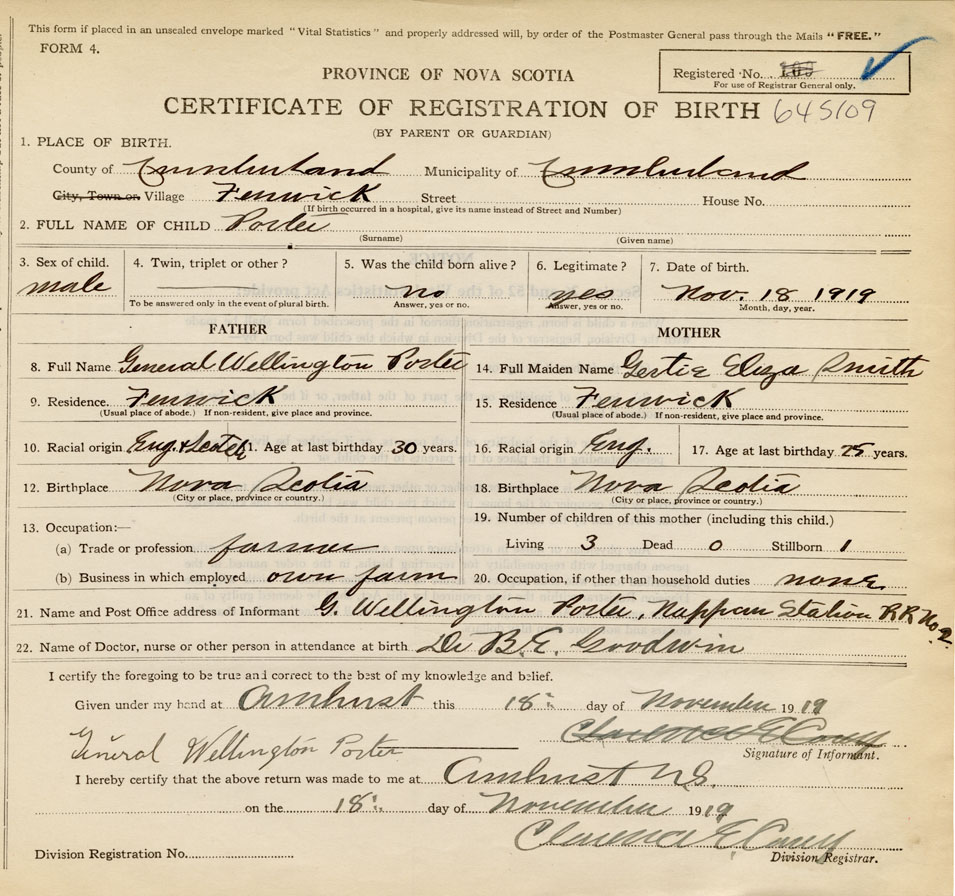 This form if placed in an unsealed envelope marked "Vital Statistics" and properly addressed will, by order of the Postmaster General pass through the Mails "FREE."
FORM 4.
PROVINCE OF NOVA SCOTIA
Registered No. 109
For use of Registrar General only.
CERTIFICATE OF REGISTRATION OF BIRTH 645109
(BY PARENT OR GUARDIAN)
1. PLACE OF BIRTH.
County of Cumberland Municipality of Cumberland
City, Town or Village Fenwick Street House No.
(If birth occurred in a hospital, give its name instead of Street and Number)
2. FULL NAME OF CHILD Porter
(Surname) (Given name)
3. Sex of child. 4. Twin, triplet or other? 5. Was the child born alive? 6. Legitimate? 7. Date of birth.
male no yes Nov. 18 1919
To be answered only in the event of plural birth. Answer, yes or no. Answer, yes or no. Month, day, year.
FATHER MOTHER
8. Full Name General Wellington Porter 14. Full Maiden Name Gertie Eliza Smith
9. Residence. Fenwick 15. Residence Fenwick
(Usual place of abode.) If non-resident, give place and province. (Usual place of abode.) If non-resident, give place and province.
10. Racial origin Eng. & Scotch 11. Age at last birthday 30 years. 16. Racial origin Eng. 17. Age at last birthday 25 years.
12. Birthplace Nova Scotia 18. Birthplace Nova Scotia
(City or place, province or country.) (City or place, province or country.)
13. Occupation:— 19. Number of children of this mother (including this child.)
(a) Trade or profession farmer Living 3 Dead 0 Stillborn 1
(b) Business in which employed own farm 20. Occupation, if other than household duties none
21. Name and Post Office address of Informant G. Wellington Porter, Nappan Station RR No 2.
22. Name of Doctor, nurse or other person in attendance at birth Dr B.E. Goodwin
I certify the foregoing to be true and correct to the best of my knowledge and belief.
Given under my hand at Amherst this 18 day of November 1919
General Wellington Porter Clarence E
Signature of Informant.
I hereby certify that the above return was made to me at Amherst NS.
on the 18 day of November 1919
Clarence E
Division Registration No. Division Registrar.